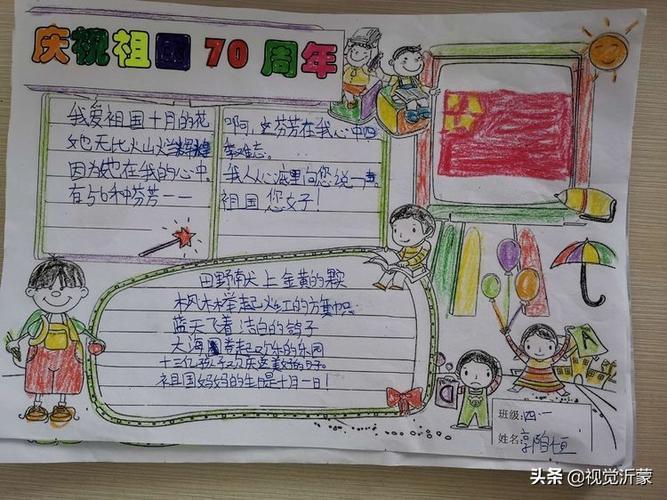 庆祝祖国70周年
我爱祖国十月的花
她无比火山火辉煌
因为她在我的心中
有56种芬芳一一
啊,这芬芳在我心中四
季难忘。
我从心底里向您说一声
祖国您好!
田野献上金黄的果
枫林举起火红的旗帜
蓝天飞着洁白的鸽子
大海卷起欢乐的乐园
十三亿孩子欢庆这美好的日子。
祖国妈妈的生日是十月一日!
班级:四·一
姓名:郭柏恒
头条 @视觉沂蒙